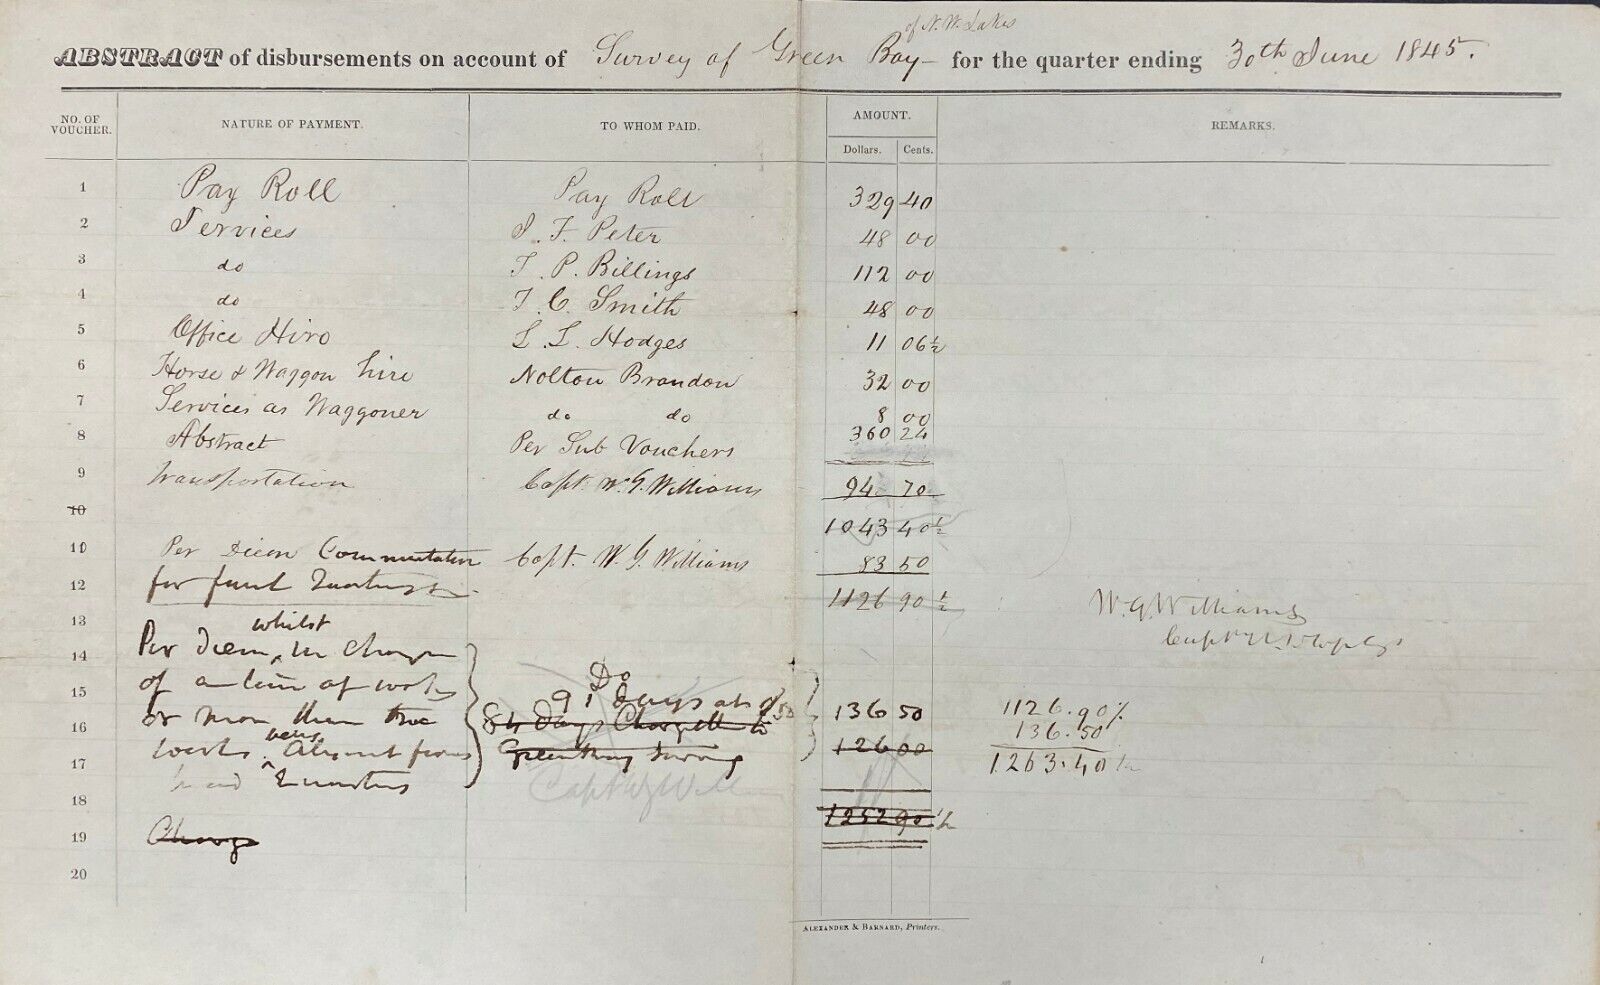 of N. W. Lakes
ABSTRACT of disbursements on account of Survey of Green Bay – for the quarter ending 30th June 1845.
NO. OF VOUCHER. NATURE OF PAYMENT. TO WHOM PAID. AMOUNT. REMARKS.
Dollars. Cents.
1 Pay Roll Pay Roll 329 40
2 Services J. F. Peter 48 00
3 do T. P. Billings 112 00
4 do T. C. Smith 48 00
5 Office Hire L. L. Hodges 11 06½
6 Horse & Waggon hire Nolton Brandon 32 00
7 Services as Waggoner do do 8 00
8 Abstract Per Sub Vouchers 360 24
9 Transportation Capt. W. G. Williams 94 70
10 1043 40½
11 Per Diem Commutation Capt. W. G. Williams 83 50
12 for fuel & Quarters 1126 90½ W. G. Williams
13 whilst Capt U. S. Top Eng
14 Per Diem, in Charge
Do
15 of a line of works 91 days at 1.50 136 50 1126.90½
16 or more than two 84 Days Charge 126 00 136.50
17 works being Absent from Green Bay Survey 1263.40½
head Quarters Capt W G Will
18 1252 90½
19 Charge
20
ALEXANDER & BARNARD, Printers.